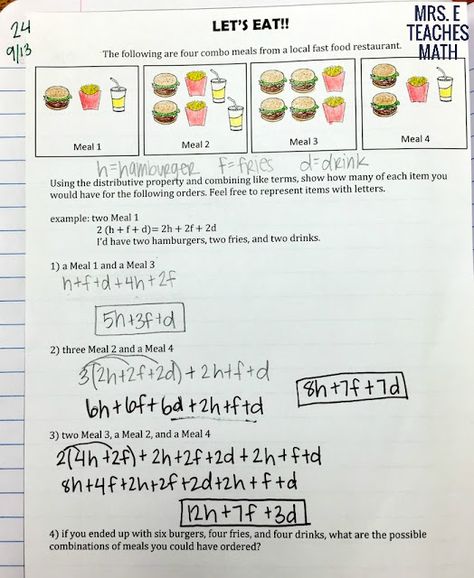 24
9/13
MRS. E
TEACHES
MATH
LET'S EAT!!
The following are four combo meals from a local fast food restaurant.
Meal 1
Meal 2
Meal 3
Meal 4
h=hamburger f=fries d=drink
Using the distributive property and combining like terms, show how many of each item you
would have for the following orders. Feel free to represent items with letters.
example: two Meal 1
2 (h + f + d)= 2h + 2f + 2d
I'd have two hamburgers, two fries, and two drinks.
1) a Meal 1 and a Meal 3
h+f+d+4h+2f
5h+3f+d
2) three Meal 2 and a Meal 4
3(2h+2f+2d) + 2h+f+d
6h+6f+6d+2h+f+d
8h+7f+7d
3) two Meal 3, a Meal 2, and a Meal 4
2(4h+2f)+2h+2f+2d+2h+f+d
8h+4f+2h+2f+2d+2h+f+d
12h+7f+3d
4) if you ended up with six burgers, four fries, and four drinks, what are the possible
combinations of meals you could have ordered?